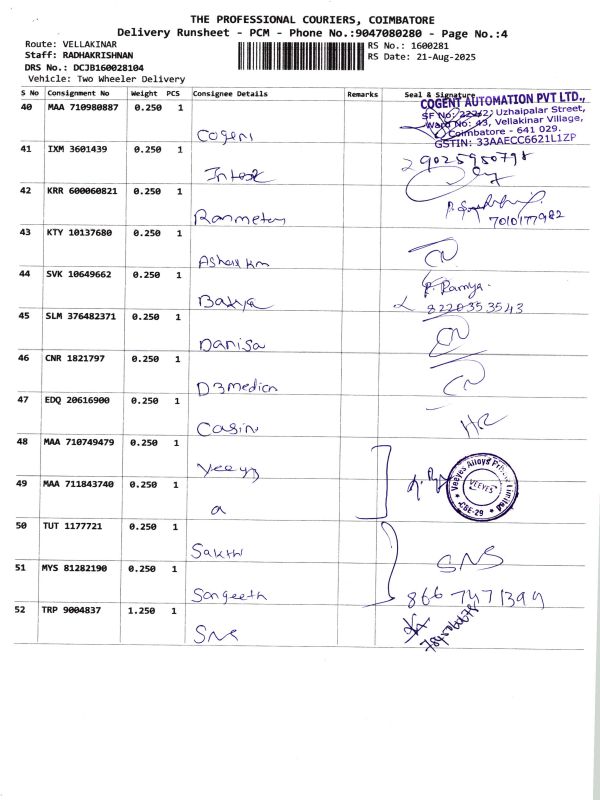 THE PROFESSIONAL COURIERS, COIMBATORE
Delivery Runsheet - PCM - Phone No.:9047080280 - Page No.:4
Route: VELLAKINAR
RS No.: 1600281
Staff: RADHAKRISHNAN
RS Date: 21-Aug-2025
DRS No.: DCJB160028104
Vehicle: Two Wheeler Delivery
S No Consignment No Weight PCS Consignee Details Remarks Seal & Signature
40 MAA 710980887 0.250 1
COGENT AUTOMATION PVT LTD.,
SF No: 22/2, Uzhaipalar Street,
Ward No: 43, Vellakinar Village,
Coimbatore - 641 029.
GSTIN: 33AAECC6621L1ZP
41 IXM 3601439 0.250 1
Intex
42 KRR 600060821 0.250 1
Ranmetan
7010177982
43 KTY 10137680 0.250 1
44 SVK 10649662 0.250 1
Bakya
P. Ramya.
8220353543
45 SLM 376482371 0.250 1
Danisa
46 CNR 1821797 0.250 1
D3medica
47 EDQ 20616900 0.250 1
Casin
HR
48 MAA 710749479 0.250 1
Veeyes Alloys Private Limited
VEEYES
CBE-29
49 MAA 711843740 0.250 1
a
50 TUT 1177721 0.250 1
Sakthi
SNS
51 MYS 81282190 0.250 1
Sangeeth
866 7471399
52 TRP 9004837 1.250 1
SNS